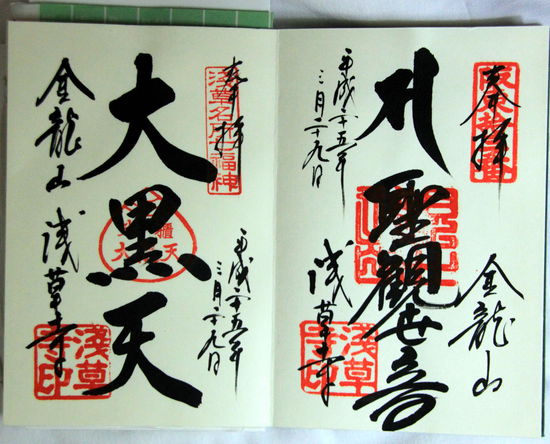 奉拝
坂東拾三番
聖観世音
平成二十五年
三月二十九日
金龍山
浅草寺
浅草寺印
奉拝
浅草名所七福神
大黒天
平成二十五年
三月二十九日
金龍山
浅草寺
浅草寺印